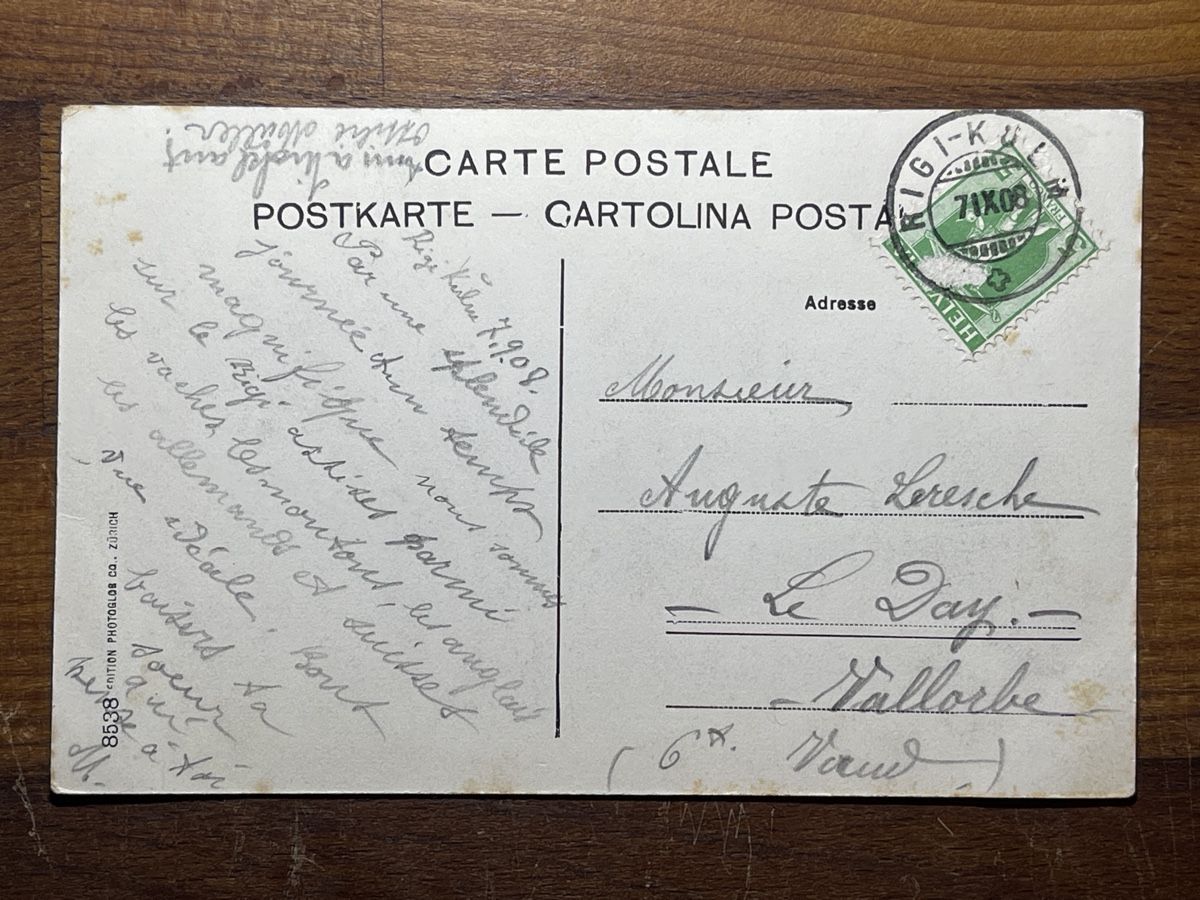 CARTE POSTALE
POSTKARTE — CARTOLINA POSTA
RIGI-KULM
7 IX 08
HELV
Adresse
Monsieur
Auguste Leresche
Le Day.
Vallorbe
(Ct. Vaud)
Rigi Kulm 7.9.08.
Par une splendide
journée d'un temps
magnifique nous sommes
sur le Rigi assises parmi
les vaches, les moutons, les anglais
les allemands et suisses
Vue idéale. Bons
baisers ta
soeur
qui
pense à toi
M.
8538 EDITION PHOTOGLOB CO., ZÜRICH